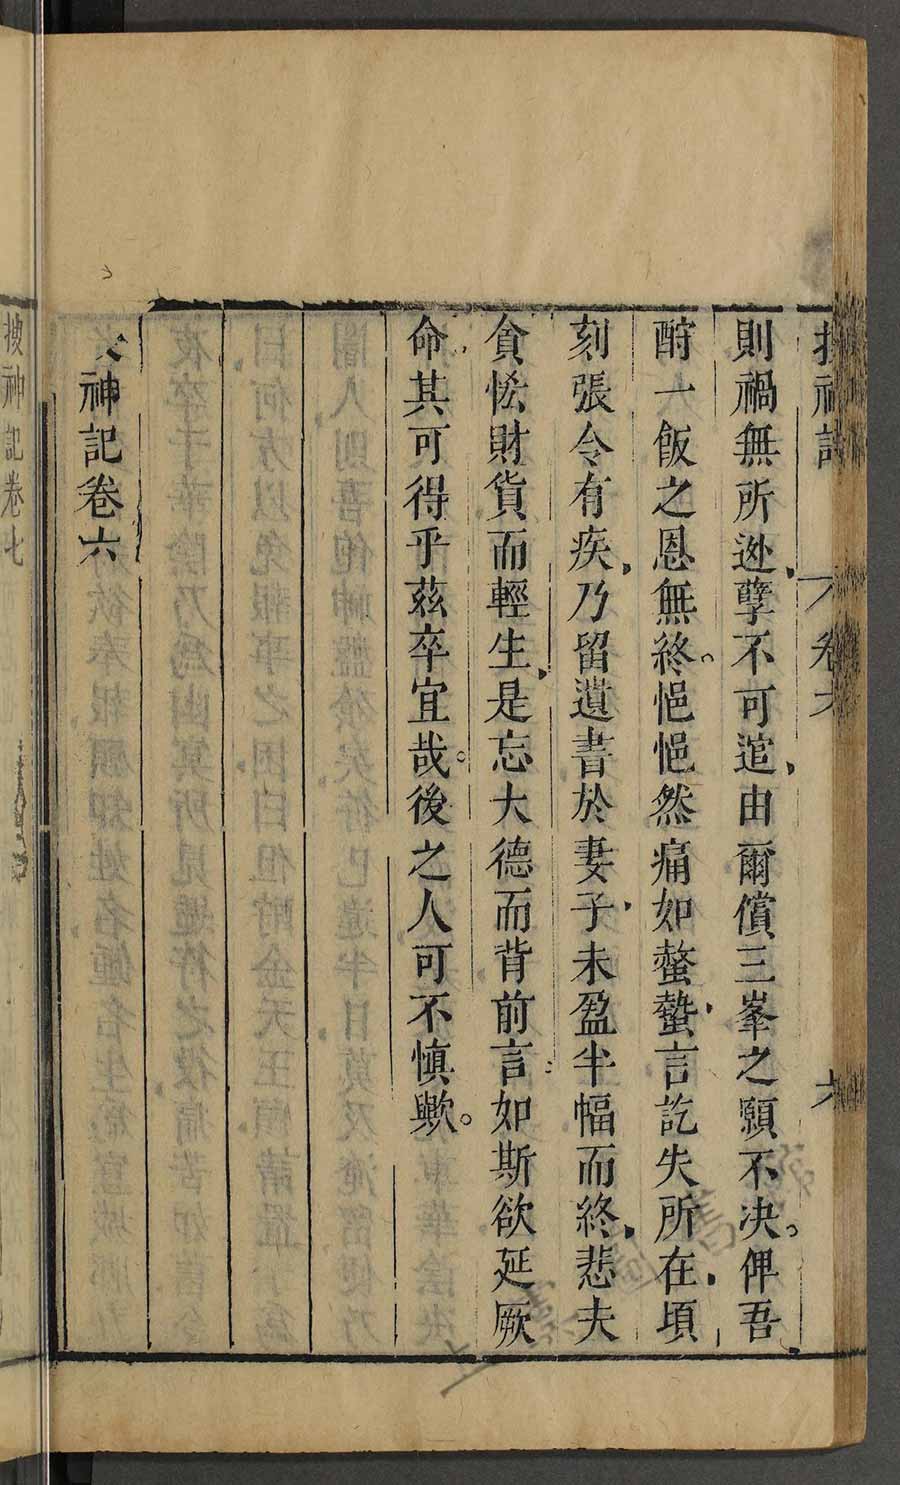 搜神記 卷六 六
則禍無所逃孽不可逭由爾償三峯之願不决俾吾
酧一飯之恩無終悒悒然痛如螫蟄言訖失所在頃
刻張令有疾乃留遺書於妻子未盈半幅而終悲夫
貪恡財貨而輕生是忘大德而背前言如斯欲延厥
命其可得乎茲卒宜哉後之人可不慎歟
搜神記卷六
搜神記卷七